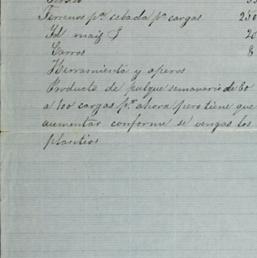 Terrenos pª cebada pª cargas 250
Id maiz
Carros 8
Herramienta y aperos
Producto de pulque semanario de 80
a 100 cargas pʳ ahora pero tiene que
aumentar conforme se vengas los
plantios